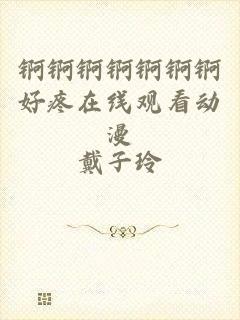 锕锕锕锕锕锕锕
好疼在线观看动
漫
戴子玲